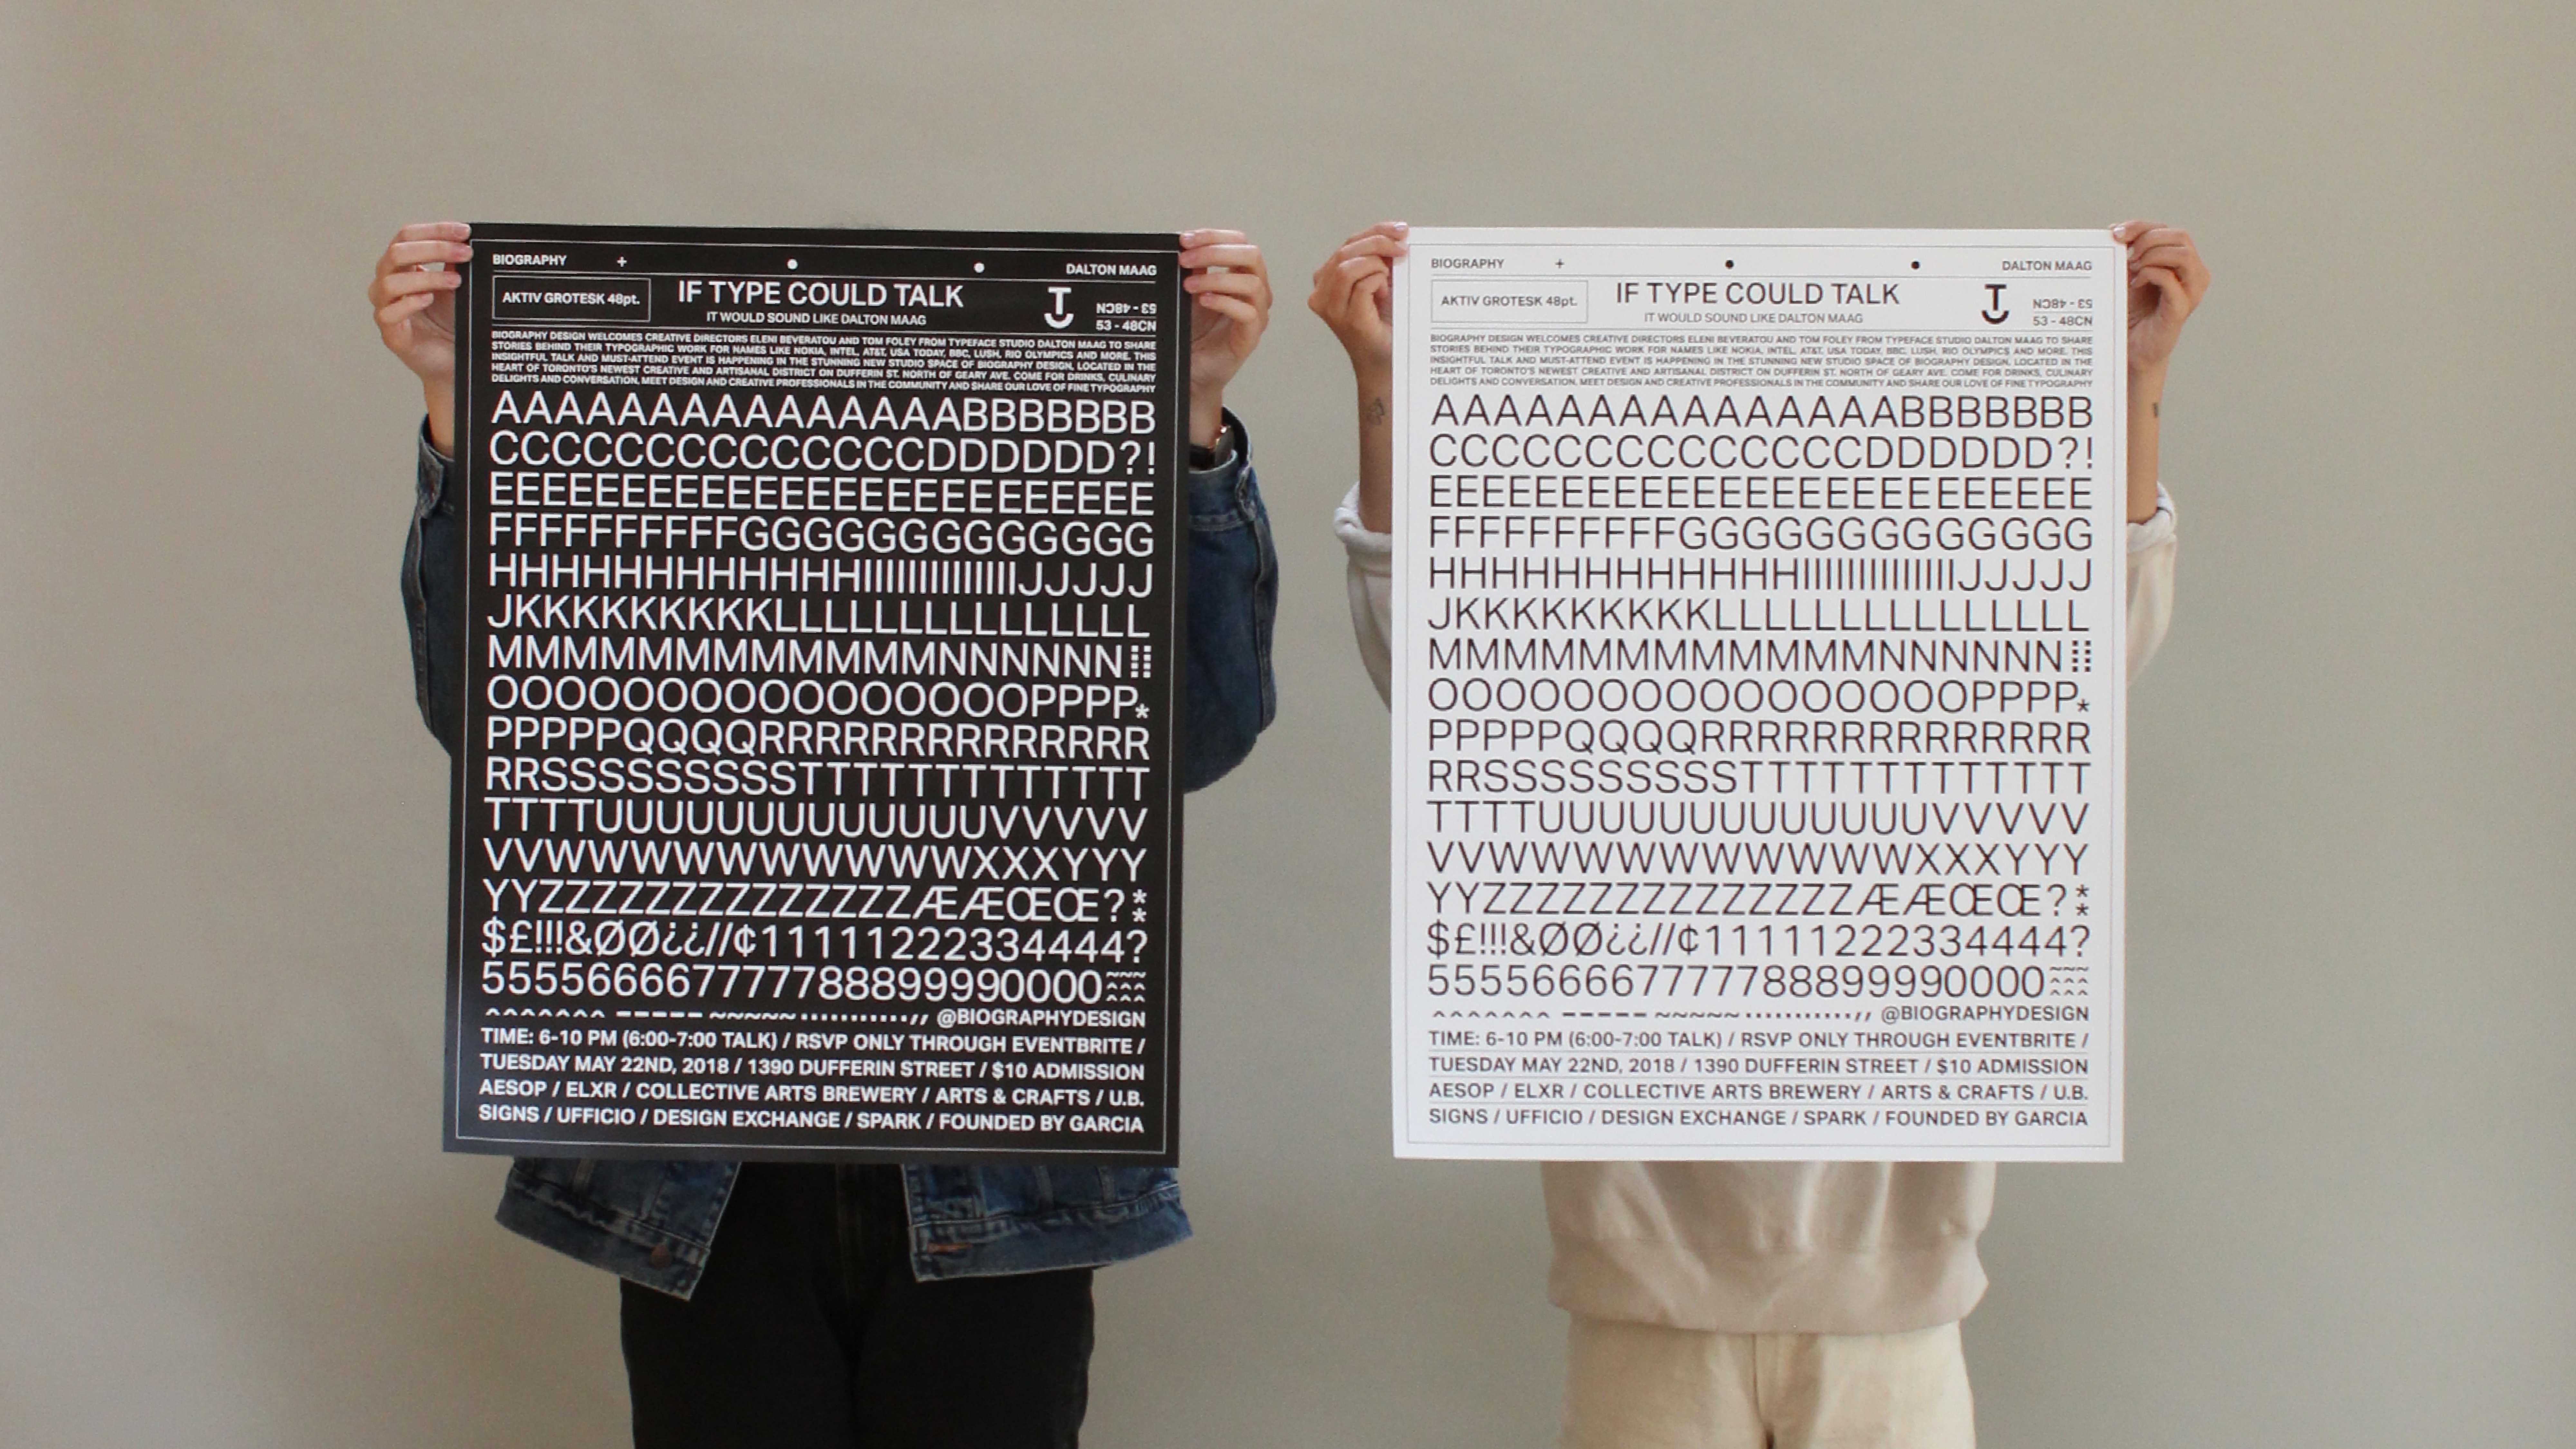 BIOGRAPHY + • • DALTON MAAG
AKTIV GROTESK 48pt.
IF TYPE COULD TALK
IT WOULD SOUND LIKE DALTON MAAG
53 - 48CN
53 - 48CN
BIOGRAPHY DESIGN WELCOMES CREATIVE DIRECTORS ELENI BEVERATOU AND TOM FOLEY FROM TYPEFACE STUDIO DALTON MAAG TO SHARE
STORIES BEHIND THEIR TYPOGRAPHIC WORK FOR NAMES LIKE NOKIA, INTEL, AT&T, USA TODAY, BBC, LUSH, RIO OLYMPICS AND MORE. THIS
INSIGHTFUL TALK AND MUST-ATTEND EVENT IS HAPPENING IN THE STUNNING NEW STUDIO SPACE OF BIOGRAPHY DESIGN, LOCATED IN THE
HEART OF TORONTO'S NEWEST CREATIVE AND ARTISANAL DISTRICT ON DUFFERIN ST. NORTH OF GEARY AVE. COME FOR DRINKS, CULINARY
DELIGHTS AND CONVERSATION, MEET DESIGN AND CREATIVE PROFESSIONALS IN THE COMMUNITY AND SHARE OUR LOVE OF FINE TYPOGRAPHY
AAAAAAAAAAAAAAABBBBBBB
CCCCCCCCCCCCCCDDDDDD?!
EEEEEEEEEEEEEEEEEEEEEEEEE
FFFFFFFFFFGGGGGGGGGGGGG
HHHHHHHHHHHHIIIIIIIIIIIIIIJJJJJ
JKKKKKKKKKLLLLLLLLLLLLLLL
MMMMMMMMMMMMNNNNNN
OOOOOOOOOOOOOOOOPPPP*
PPPPPQQQQRRRRRRRRRRRRRR
RRSSSSSSSSSTTTTTTTTTTTTT
TTTTUUUUUUUUUUUUUVVVVV
VVWWWWWWWWWWXXXYYY
YYZZZZZZZZZZZZZZÆÆŒŒ?**
$£!!!&ØØ¿¿//¢11111222334444?
555566667777788899990000
@BIOGRAPHYDESIGN
TIME: 6-10 PM (6:00-7:00 TALK) / RSVP ONLY THROUGH EVENTBRITE /
TUESDAY MAY 22ND, 2018 / 1390 DUFFERIN STREET / $10 ADMISSION
AESOP / ELXR / COLLECTIVE ARTS BREWERY / ARTS & CRAFTS / U.B.
SIGNS / UFFICIO / DESIGN EXCHANGE / SPARK / FOUNDED BY GARCIA
BIOGRAPHY + • • DALTON MAAG
AKTIV GROTESK 48pt.
IF TYPE COULD TALK
IT WOULD SOUND LIKE DALTON MAAG
53 - 48CN
53 - 48CN
BIOGRAPHY DESIGN WELCOMES CREATIVE DIRECTORS ELENI BEVERATOU AND TOM FOLEY FROM TYPEFACE STUDIO DALTON MAAG TO SHARE
STORIES BEHIND THEIR TYPOGRAPHIC WORK FOR NAMES LIKE NOKIA, INTEL, AT&T, USA TODAY, BBC, LUSH, RIO OLYMPICS AND MORE. THIS
INSIGHTFUL TALK AND MUST-ATTEND EVENT IS HAPPENING IN THE STUNNING NEW STUDIO SPACE OF BIOGRAPHY DESIGN, LOCATED IN THE
HEART OF TORONTO'S NEWEST CREATIVE AND ARTISANAL DISTRICT ON DUFFERIN ST. NORTH OF GEARY AVE. COME FOR DRINKS, CULINARY
DELIGHTS AND CONVERSATION, MEET DESIGN AND CREATIVE PROFESSIONALS IN THE COMMUNITY AND SHARE OUR LOVE OF FINE TYPOGRAPHY
AAAAAAAAAAAAAAABBBBBBB
CCCCCCCCCCCCCCDDDDDD?!
EEEEEEEEEEEEEEEEEEEEEEEEE
FFFFFFFFFFGGGGGGGGGGGGG
HHHHHHHHHHHHIIIIIIIIIIIIIIJJJJJ
JKKKKKKKKKLLLLLLLLLLLLLLL
MMMMMMMMMMMMNNNNNN
OOOOOOOOOOOOOOOOPPPP*
PPPPPQQQQRRRRRRRRRRRRRR
RRSSSSSSSSSTTTTTTTTTTTTT
TTTTUUUUUUUUUUUUUVVVVV
VVWWWWWWWWWWXXXYYY
YYZZZZZZZZZZZZZZÆÆŒŒ?**
$£!!!&ØØ¿¿//¢11111222334444?
555566667777788899990000
@BIOGRAPHYDESIGN
TIME: 6-10 PM (6:00-7:00 TALK) / RSVP ONLY THROUGH EVENTBRITE /
TUESDAY MAY 22ND, 2018 / 1390 DUFFERIN STREET / $10 ADMISSION
AESOP / ELXR / COLLECTIVE ARTS BREWERY / ARTS & CRAFTS / U.B.
SIGNS / UFFICIO / DESIGN EXCHANGE / SPARK / FOUNDED BY GARCIA